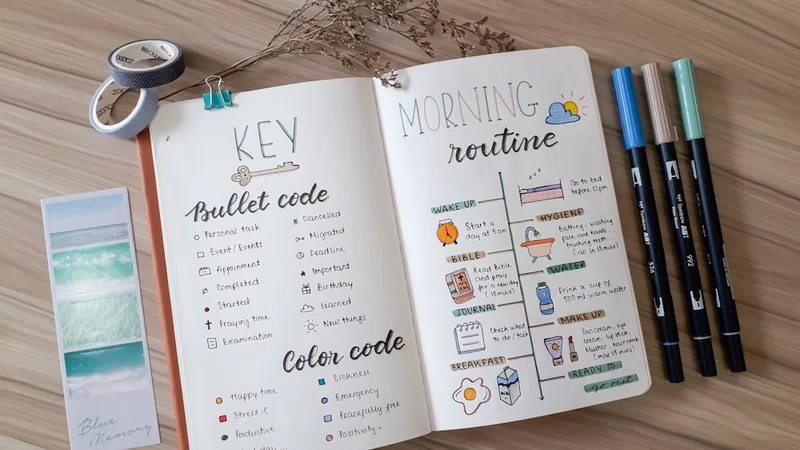 KEY
Bullet code
Personal task
Event / Events
Appoinment
Completed
Started
Praying time
Examination
Cancelled
Migrated
Deadline
Important
Birthday
Learned
New things
Color code
Happy time
Stress :(
Productive
Sickness
Emergency
Peacefully free
Positivity
MORNING
routine
WAKE UP
Start a
day at 5am
BIBLE
Read Bible
and pray
for a new day
(15 mins)
JOURNAL
Check what
to do / task
BREAKFAST
zzz
Go to bed
before 12pm
HYGIENE
Bathing, washing
face and hands,
brushing teeth
(all in 15 mins)
WATER
Drink a cup of
500 ml warm water
MAKE UP
Suncream, eye
cream, lip stick,
blusher, haircomb
(max 15 mins)
READY TO
go out
Blue
Memory
ABT
526
ABT
992
ABT